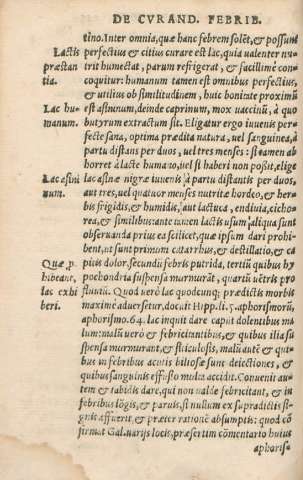 DE CVRAND. FEBRIB.
tino. Inter omnia, quæ hanc febrem solẽt, & possunt
Lactis præstan tia.
perfectius & citius curare est lac, quia ualenter nu-
trit humectat, parum refrigerat, & facillimè con-
coquitur: humanum tamen est omnibus perfectius,
& utilius ob similitudinem, huic bonitate proximũ
Lac hu- manum.
est asininum, deinde caprinum, mox uaccinũ, à quo
butyrum extractum sit. Eligatur ergo iuuenis per-
fecte sana, optima prædita natura, uel sanguinea, à
partu distans per duos, uel tres menses: si tamen ab
horret à lacte humano, uel si haberi non possit, elige
Lac asini num.
lac asinæ nigræ iuuenis à partu distantis per duos,
aut tres, uel quatuor menses nutritæ hordeo, & her-
bis frigidis, & humidis, aut lactuca, endiuia, cicho-
rea, & similibus: ante tamen lactis usum, aliqua sunt
obseruanda prius ea scilicet, quæ ipsum dari prohi-
bent, ut sunt primum catarrhus, & destillatio, & ca
Quæ p. hibeant, lac exhi beri.
pitis dolor, secundũ febris putrida, tertiũ quibus hy
pochondria suspensa murmurãt, quartũ uẽtris pro
fluuiũ. Quod uerò lac quodcunq; prædictis morbis
maximè aduersetur, docuit Hipp. li. 5. aphorismorũ,
aphorismo. 64. lac inquit dare caput dolentibus ma
lum: malũ uerò & febricitantibus, & quibus ilia su
spensa murmurant, & siticulosis, malũ autẽ & qui-
bus in febribus acutis biliosæ sunt deiectiones, &
quibus sanguinis effusio multa accidit. Conuenit au-
tem & tabidis dare, qui non ualde febricitant, & in
febribus lõgis, & paruis, si nullum ex supradictis si-
gnis affuerit, & præter rationẽ absumptis: quod cõ
firmat Gal. uarijs locis, præsertim cõmentario huius
aphoris-